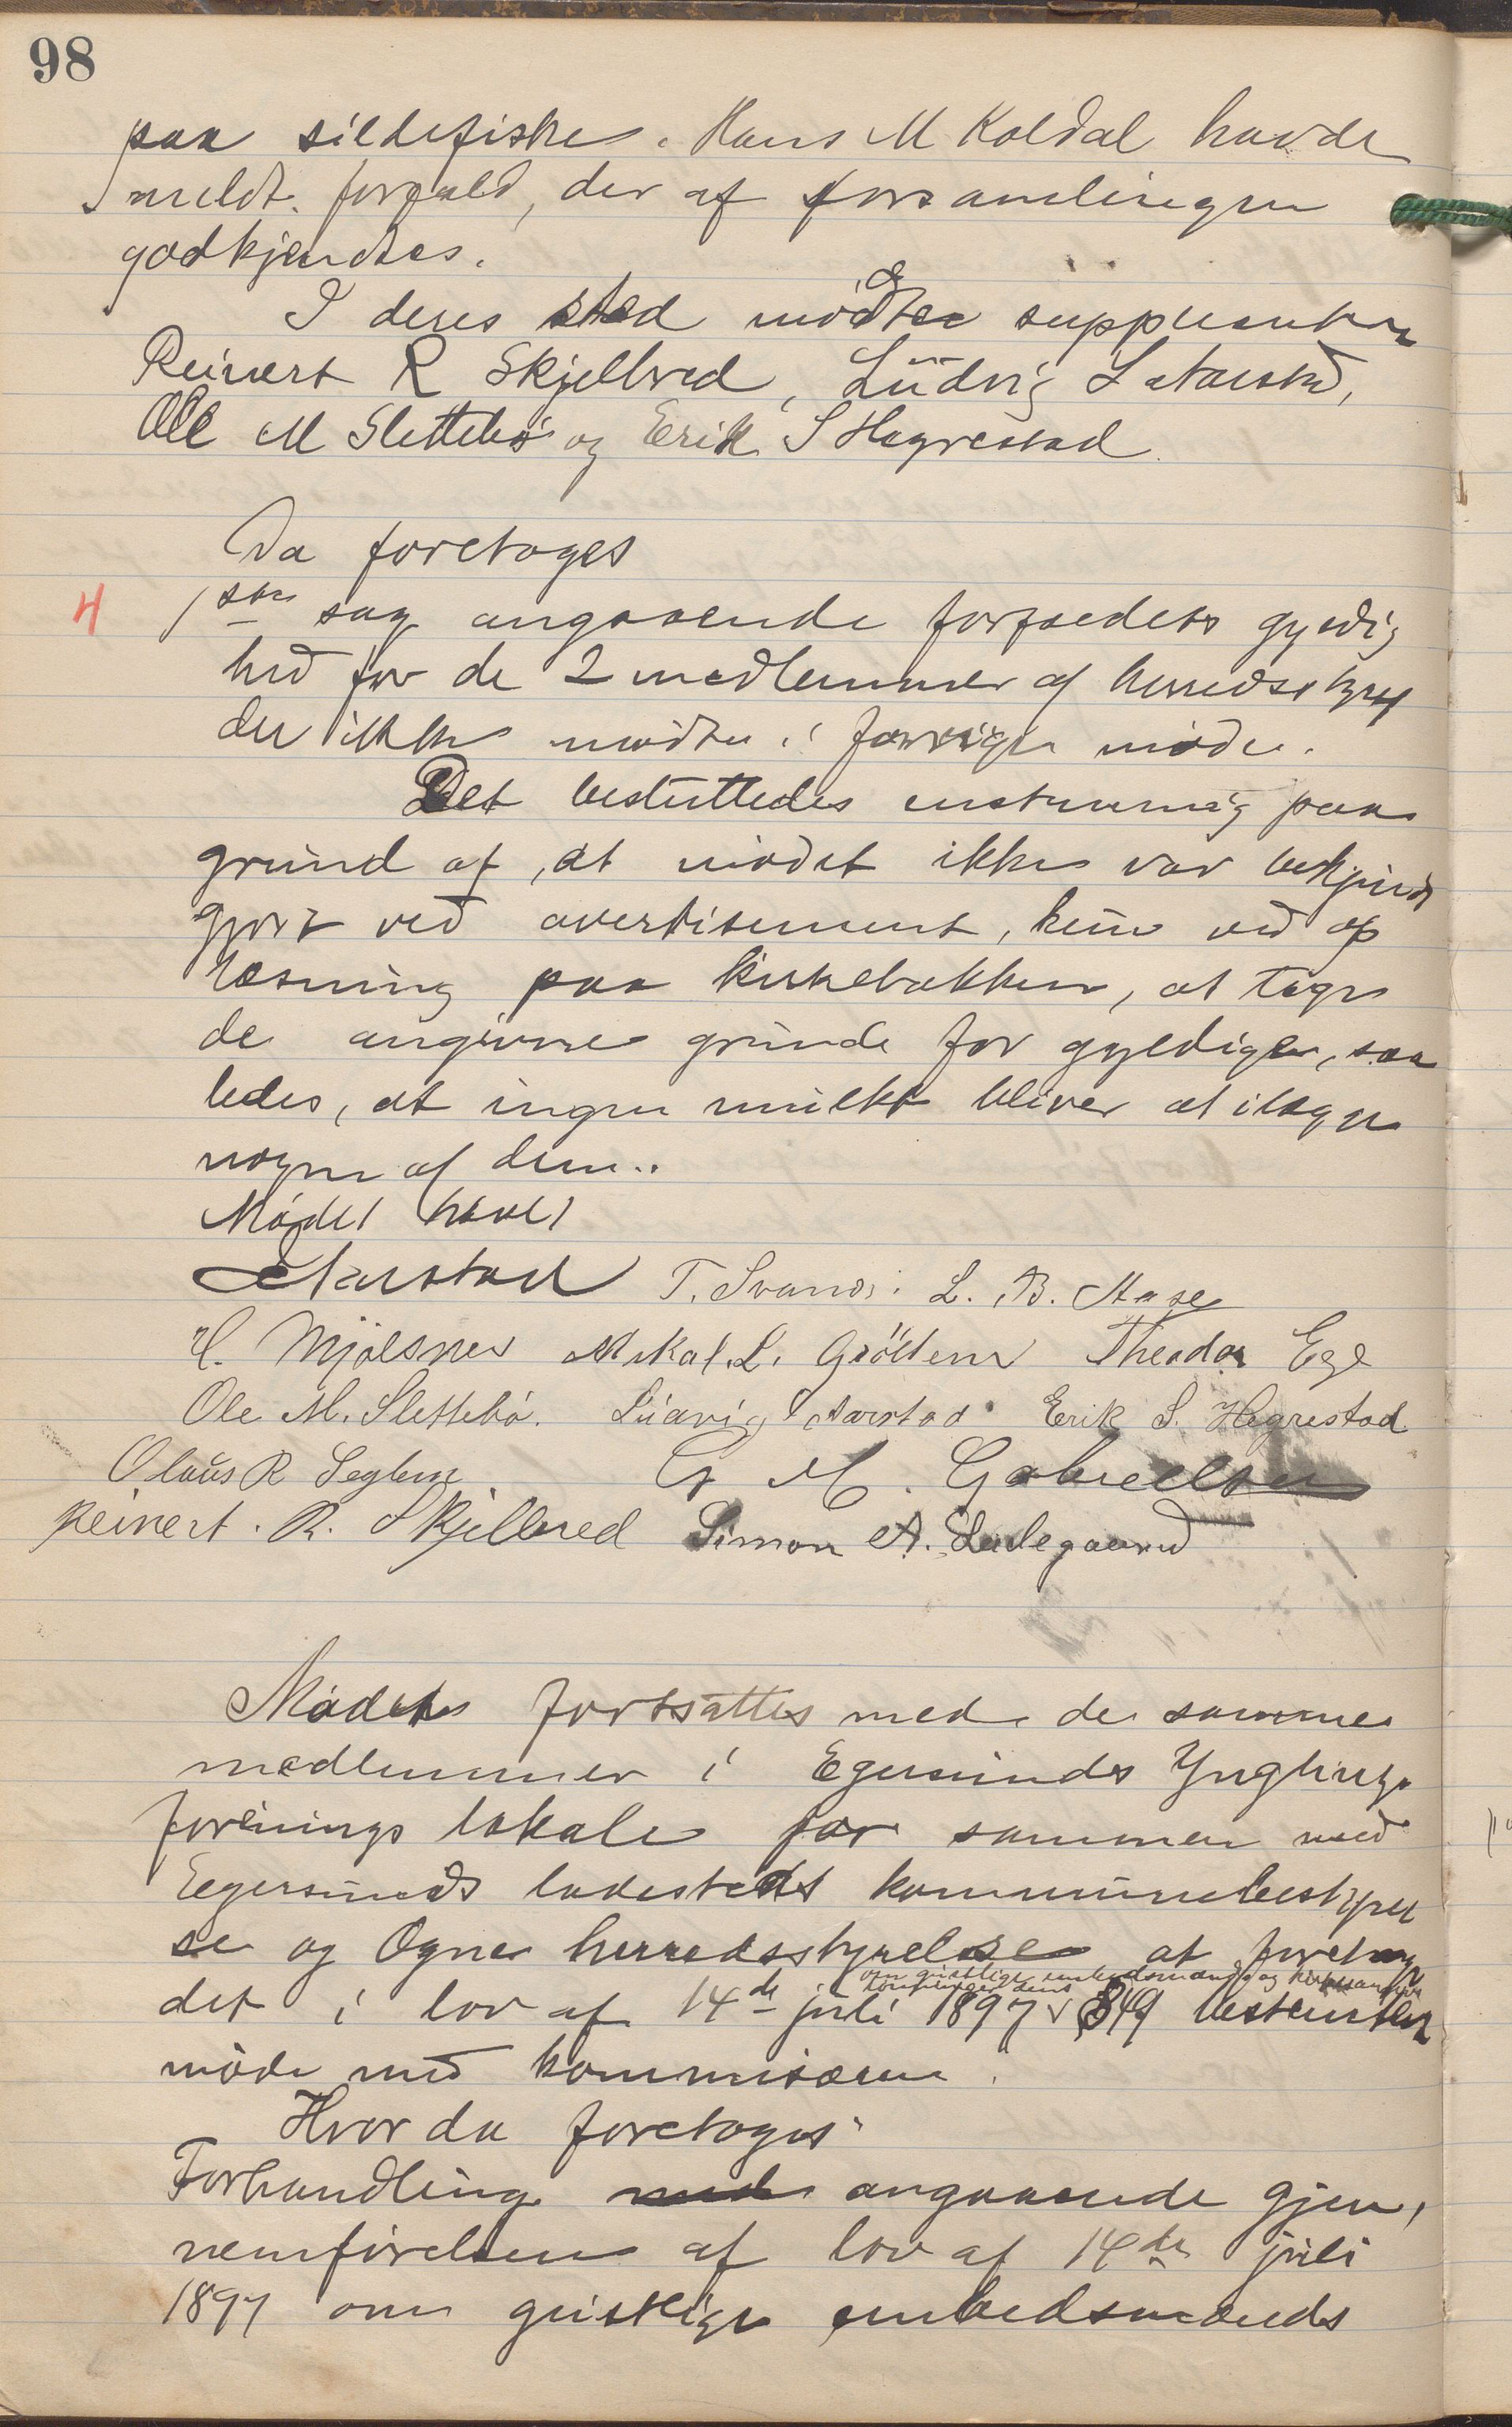 98
paa sildefiske. Hans M Koldal havde
meldt forfald, der af forsamlingen
godkjendtes.
I deres sted mødte suppleanter
Reinert R Skjelbred, Lüdvig L Aarstad,
Ole M Slettebø og Erik S Hegrestad
Da foretoges
4 1ste sag angaaende forfaldets gyldig
hed for de 2 medlemmer af herredsstyret
der ikke mødte i forrige møde.
Det besluttedes enstemmig paa
grund af, at mødet ikke var bekjendt
gjort ved avertisement, kun ved op
læsning paa kirkebakken, at tage
de angivne grunde for gyldige, saa
ledes, at ingen mulkt bliver at ilægge
nogen af dem..
Mødet hævet
Aarstad T. Svanes. L. B. Aase
H. Mjølsnes Mikal. L. Gröttem Theodor Ege
Ole M. Slettebø. Lúdvig Aarstad Erik S. Hegrestad
Olaus R Seglem G M. Gabrielsen
Reinert. R. Skjelbred Simon A. Ladegaard
Mødet fortsattes med de samme
medlemmer i Egersunds Ynglinge
forenings lokale for sammen med
Egersunds ladesteds kommunebestyrel
se og Ogne herredsstyrelse at foretage
om geistlige embedsmænds og kirkesangeres
lønninger dens
det i lov af 14de juli 1897 § 49 bestemte
møde med kommisæren.
Hvor da foretoges
Forhandling angaaende gjen,
nemførelsen af lov af 14de juli
1897 om geistlige embedsmænds